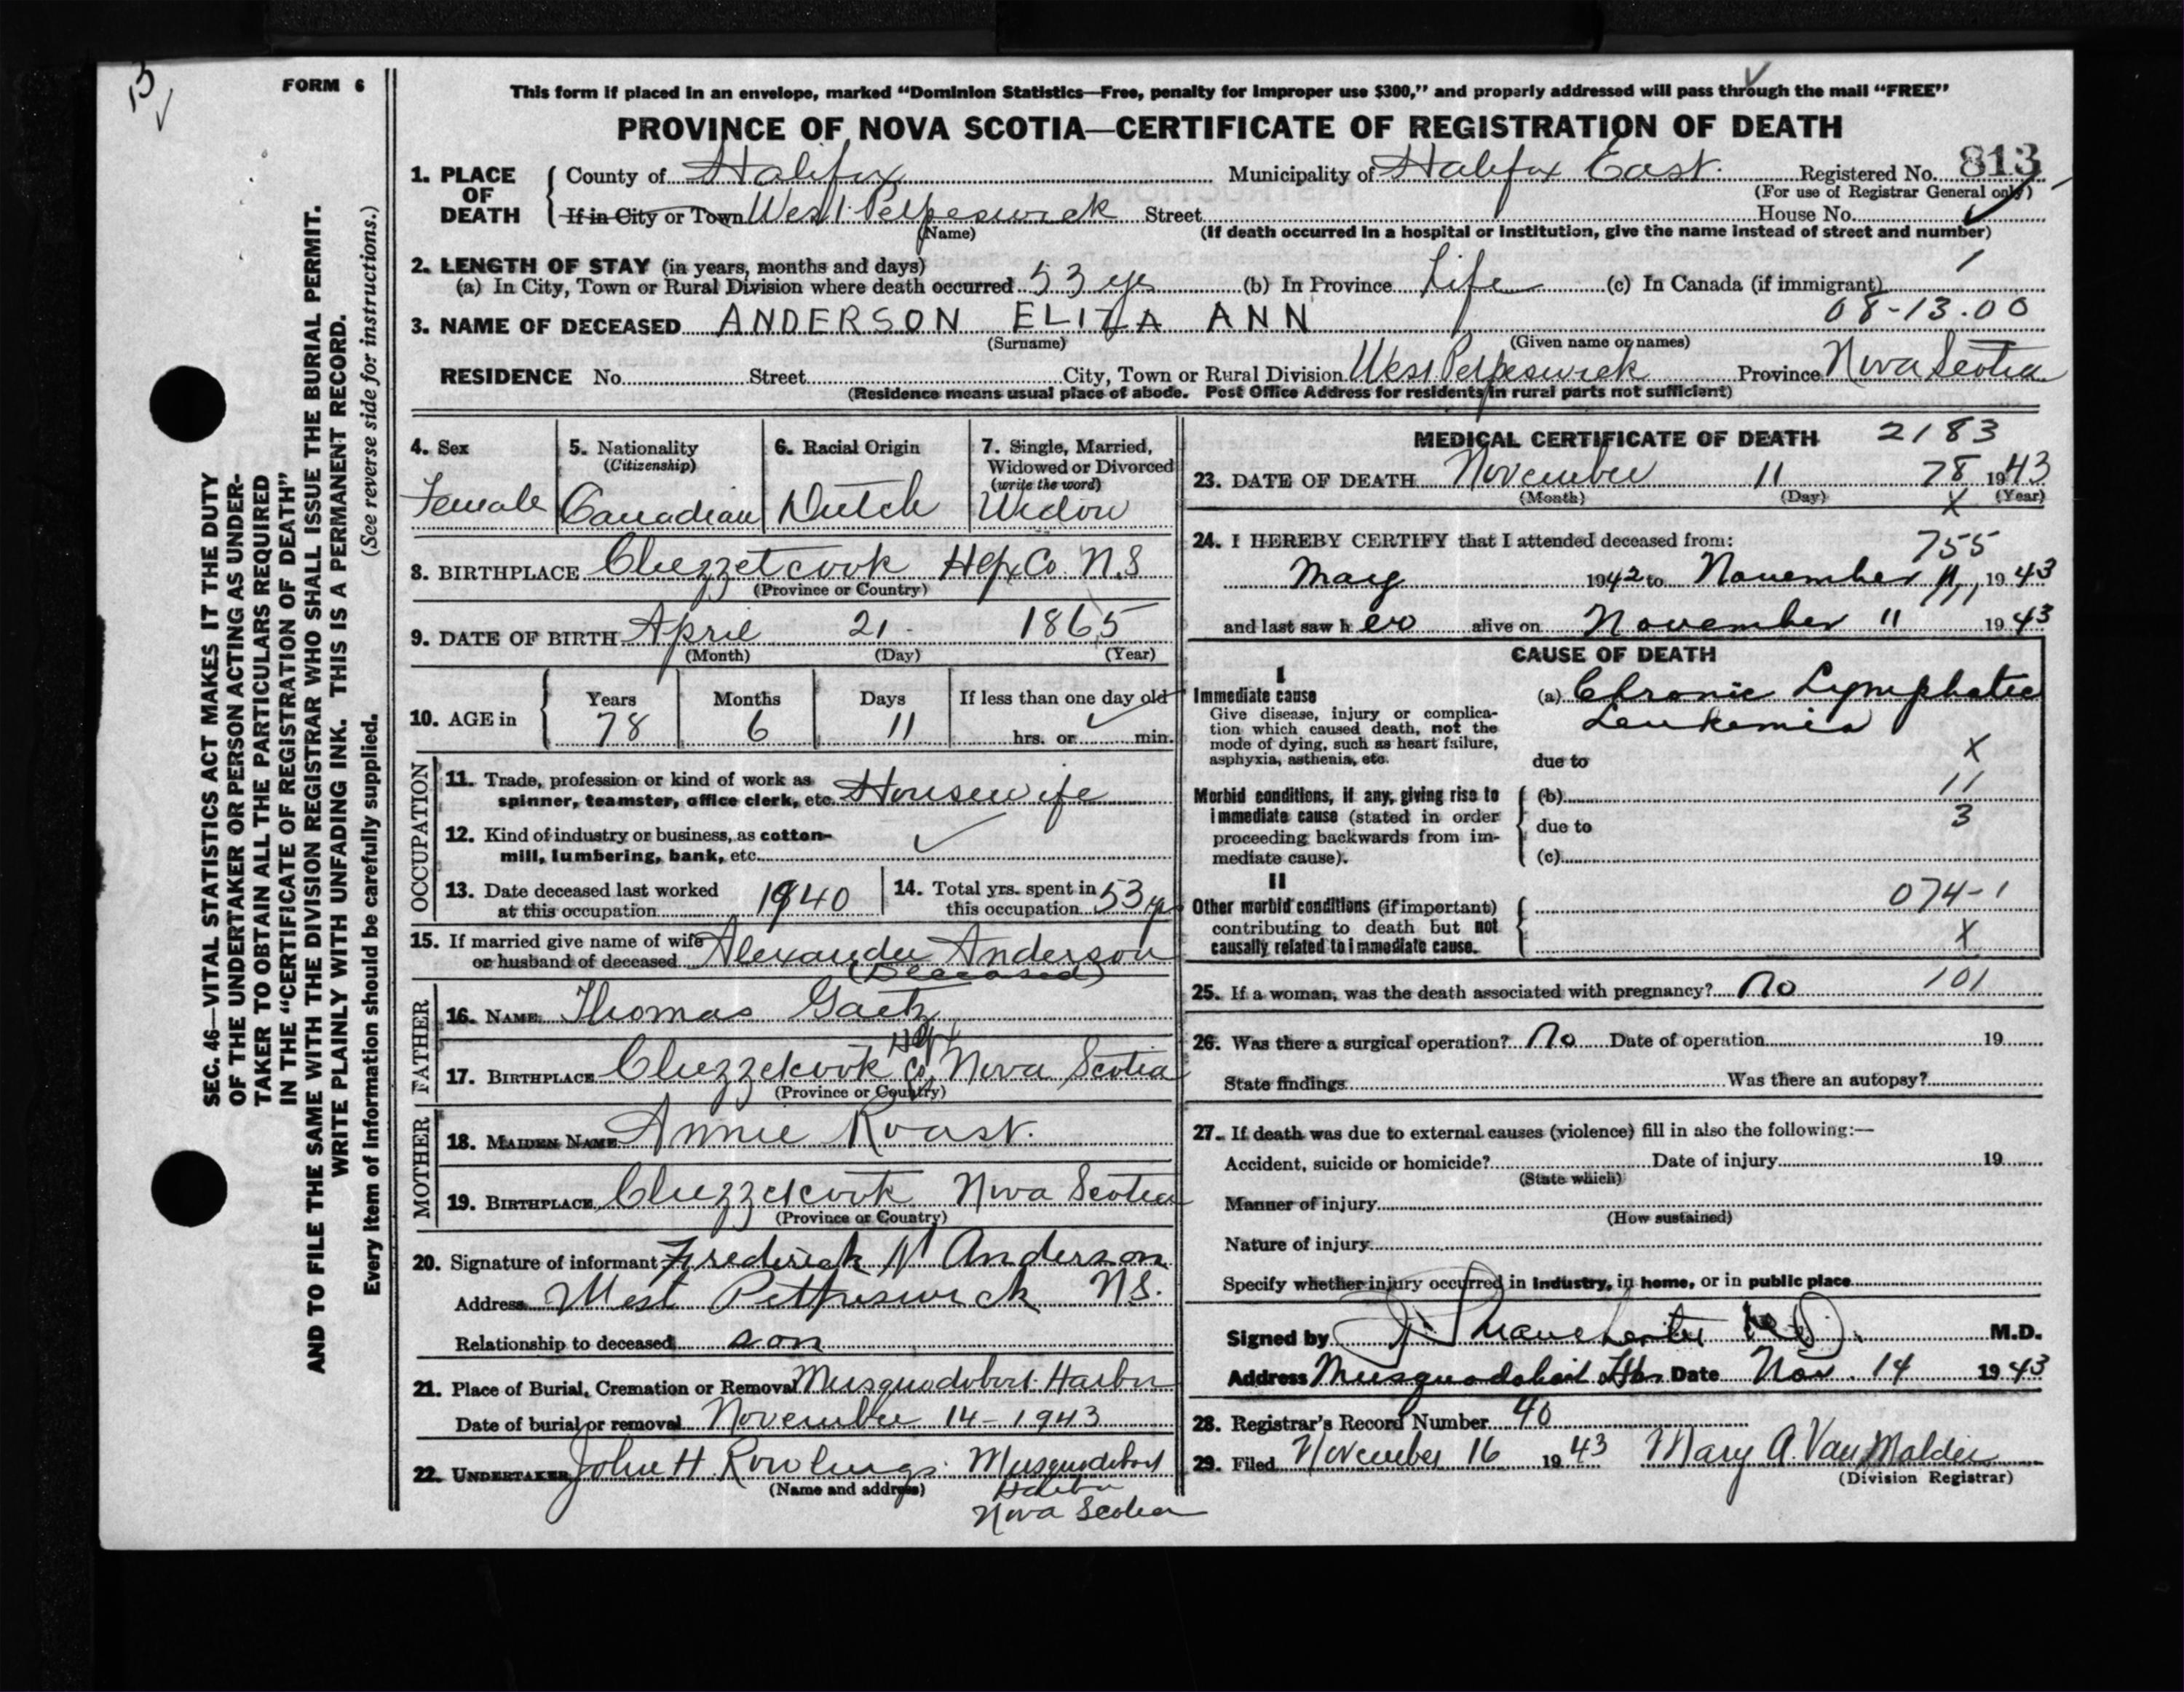 13
FORM 6
SEC. 46—VITAL STATISTICS ACT MAKES IT THE DUTY
OF THE UNDERTAKER OR PERSON ACTING AS UNDER-
TAKER TO OBTAIN ALL THE PARTICULARS REQUIRED
IN THE "CERTIFICATE OF REGISTRATION OF DEATH"
AND TO FILE THE SAME WITH THE DIVISION REGISTRAR WHO SHALL ISSUE THE BURIAL PERMIT.
WRITE PLAINLY WITH UNFADING INK. THIS IS A PERMANENT RECORD.
Every item of information should be carefully supplied. (See reverse side for instructions.)
This form if placed in an envelope, marked "Dominion Statistics—Free, penalty for improper use $300," and properly addressed will pass through the mail "FREE"
PROVINCE OF NOVA SCOTIA—CERTIFICATE OF REGISTRATION OF DEATH
1. PLACE OF DEATH County of Halifax Municipality of Halifax East. Registered No. 813
(For use of Registrar General only)
If in City or Town West Petpeswick Street House No.
(Name) (If death occurred in a hospital or institution, give the name instead of street and number)
2. LENGTH OF STAY (in years, months and days)
(a) In City, Town or Rural Division where death occurred 53 yrs (b) In Province Life (c) In Canada (if immigrant) 1
3. NAME OF DECEASED ANDERSON ELIZA ANN 08-13.00
(Surname) (Given name or names)
RESIDENCE No. Street City, Town or Rural Division West Petpeswick Province Nova Scotia
(Residence means usual place of abode. Post Office Address for residents in rural parts not sufficient)
4. Sex Female
5. Nationality (Citizenship) Canadian
6. Racial Origin Dutch
7. Single, Married, Widowed or Divorced (write the word) Widow
8. BIRTHPLACE Chezzetcook Hfx Co. N.S
(Province or Country)
9. DATE OF BIRTH April 21 - 1865
(Month) (Day) (Year)
10. AGE in Years 78 Months 6 Days 11 If less than one day old hrs. or min.
OCCUPATION
11. Trade, profession or kind of work as
spinner, teamster, office clerk, etc. Housewife
12. Kind of industry or business, as cotton-
mill, lumbering, bank, etc.
13. Date deceased last worked
at this occupation 1940
14. Total yrs. spent in
this occupation 53 yrs
15. If married give name of wife
or husband of deceased Alexander Anderson
(Deceased)
FATHER
16. NAME Thomas Gaetz
17. BIRTHPLACE Chezzetcook Hfx Co. Nova Scotia
(Province or Country)
MOTHER
18. MAIDEN NAME Annie Roast.
19. BIRTHPLACE Chezzetcook Nova Scotia
(Province or Country)
20. Signature of informant Frederick N Anderson
Address West Petpeswick N.S.
Relationship to deceased son
21. Place of Burial, Cremation or Removal Musquodoboit Harbor
Date of burial or removal November 14 - 1943
22. UNDERTAKER John H Rowlings. Musquodoboit
(Name and address) Harbor
Nova Scotia
MEDICAL CERTIFICATE OF DEATH 2183
23. DATE OF DEATH November 11 78 1943
(Month) (Day) X (Year)
24. I HEREBY CERTIFY that I attended deceased from:
755
May 1942 to November 11, 1943
and last saw her alive on November 11 1943
CAUSE OF DEATH
I
Immediate cause
Give disease, injury or complica-
tion which caused death, not the
mode of dying, such as heart failure,
asphyxia, asthenia, etc.
(a) Chronic Lymphatic
Leukemia
due to X
Morbid conditions, if any, giving rise to
immediate cause (stated in order
proceeding backwards from im-
mediate cause).
(b) 11
due to 3
(c)
II
Other morbid conditions (if important)
contributing to death but not
causally related to immediate cause.
074-1
X
25. If a woman, was the death associated with pregnancy? no 101
26. Was there a surgical operation? no Date of operation 19
State findings Was there an autopsy?
27. If death was due to external causes (violence) fill in also the following:—
Accident, suicide or homicide? Date of injury 19
(State which)
Manner of injury
(How sustained)
Nature of injury
Specify whether injury occurred in industry, in home, or in public place
Signed by M.D.
Address Musquodoboit Hbr. Date Nov. 14 1943
28. Registrar's Record Number 40
29. Filed November 16 1943 Mary A. Van Malder
(Division Registrar)